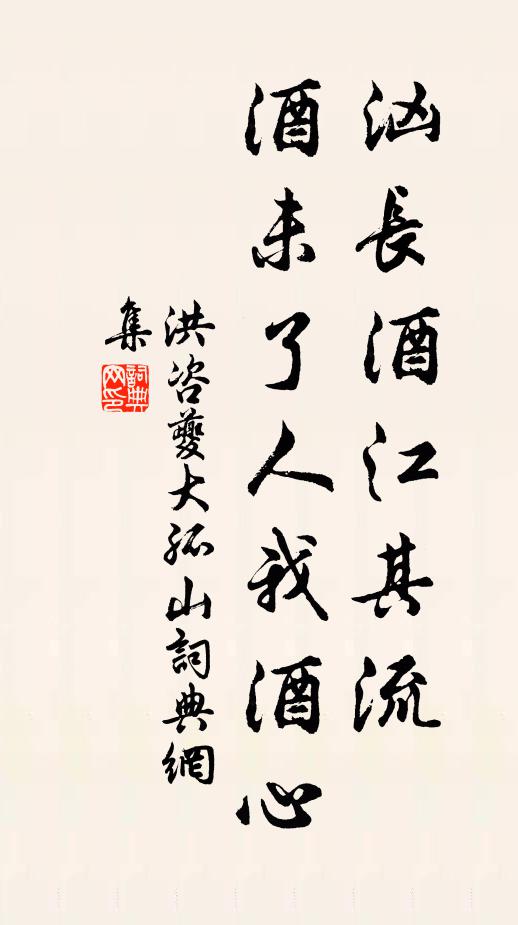 汹長酒江其流
酒未了人我酒心
洪咨夔大孤山詞典網
集
詞典网印